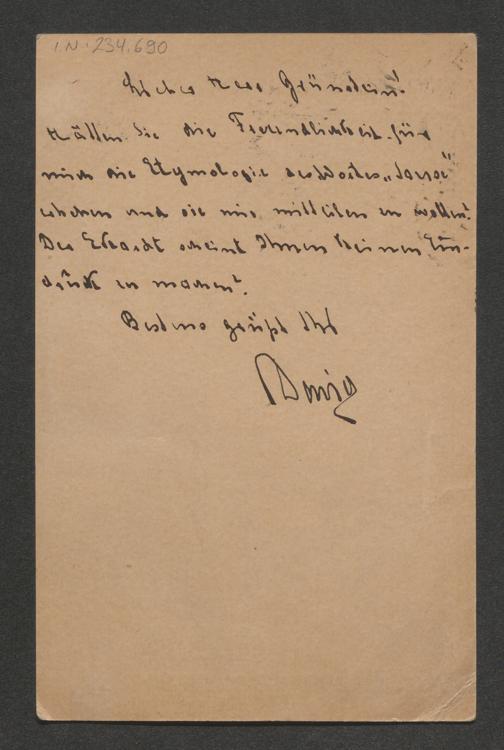 I.N. 234.690
Lieber Herr Grünstein!
Hätten Sie die Freundlichkeit für
mich die Etymologie des Wortes
und sie mir mitteilen zu wollen?
Der scheint Ihnen keinen Ein-
druck zu machen?
Bestens grüßt Ihr